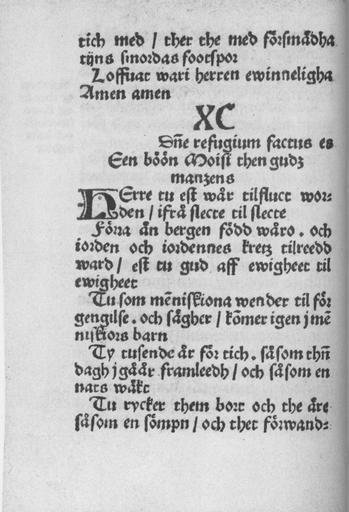 tich med / ther the med försmådha
tijns smordas footspor
Loffuat wari herren ewinneligha
Amen amen
XC
Dñe refugium factus es
Een böön Moisi then gudz
manzens
HErre tu est wår tilfluct wor-
den / ifrå slecte til slecte
Förra än bergen född wåro. och
iorden och iordennes kretz tilreedd
ward / est tu gud aff ewigheet til
ewigheet
Tu som mēniskiona wender til för
gengilse. och sägher / kōmer igen j mē
niskiors barn
Ty tusende år för tich. såsom thñ
dagh j gåår framleedh / och såsom en
nats wåkt
Tu rycker them bort och the äre
såsom en sömpn / och thet förwand-